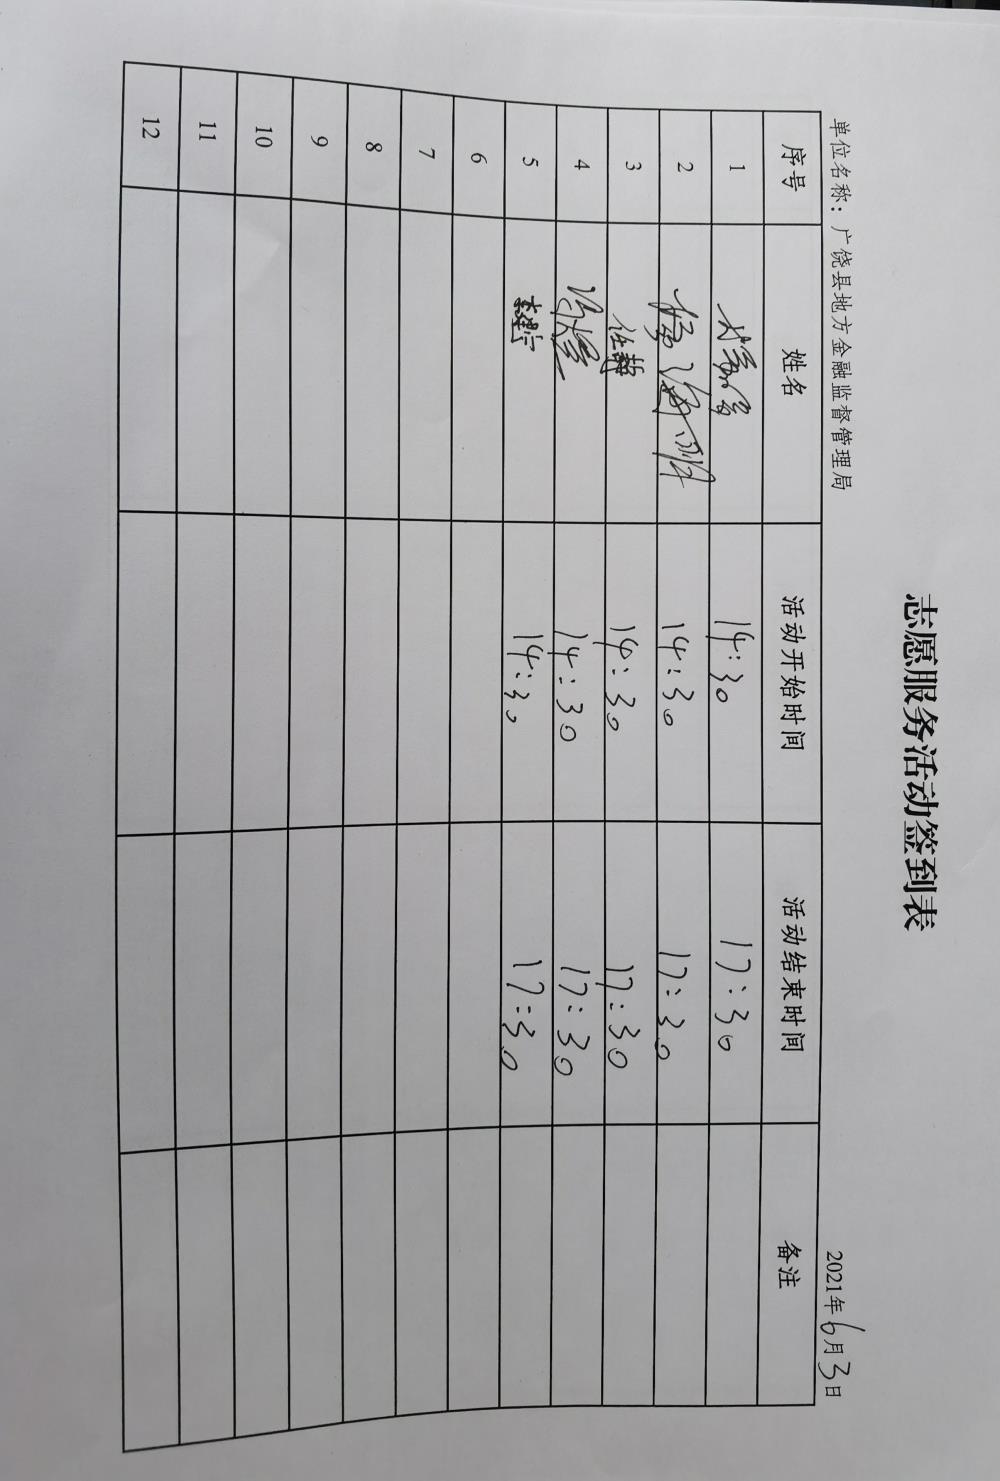 志愿服务活动签到表
单位名称：广饶县地方金融监督管理局 2021年6月3日
序号 姓名 活动开始时间 活动结束时间 备注
1 14:30 17:30
2 14:30 17:30
3 任静 14:30 17:30
4 14:30 17:30
5 14:30 17:30
6
7
8
9
10
11
12